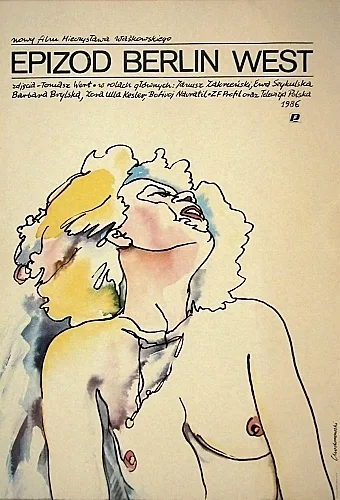 nowy film Mieczysława Waśkowskiego
EPIZOD BERLIN WEST
zdjęcia - Tomasz Wert • w rolach głównych: Janusz Zakrzeński, Ewa Szykulska
Barbara Brylska, Zora Ulla Kesler, Bořivoj Navrátil • ZF Profil oraz Telewizja Polska
1986